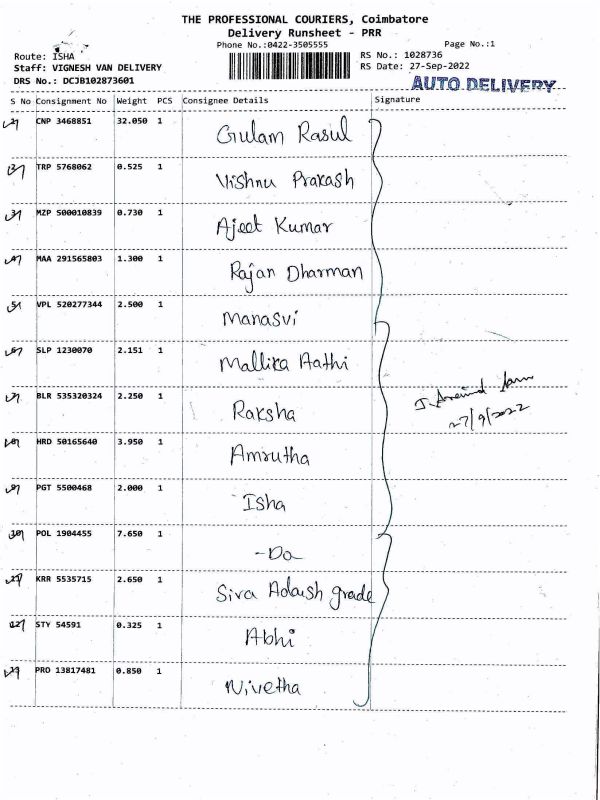 THE PROFESSIONAL COURIERS, Coimbatore
Delivery Runsheet - PRR
Phone No.:0422-3505555 Page No.:1
Route: ISHA RS No.: 1028736
Staff: VIGNESH VAN DELIVERY RS Date: 27-Sep-2022
DRS No.: DCJB102873601 AUTO DELIVERY
S No Consignment No Weight PCS Consignee Details Signature
1 CNP 3468851 32.050 1 Gulam Rasul
2 TRP 5768062 0.525 1 Vishnu Prakash
3 MZP 500010839 0.730 1 Ajeet Kumar
4 MAA 291565803 1.300 1 Rajan Dharman
5 VPL 520277344 2.500 1 Manasvi
6 SLP 1230070 2.151 1 Mallika Aathi
7 BLR 535320324 2.250 1 Raksha
8 HRD 50165640 3.950 1 Amrutha
9 PGT 5500468 2.000 1 Isha
10 POL 1904455 7.650 1 -Do-
11 KRR 5535715 2.650 1 Siva Adarsh grade
12 STY 54591 0.325 1 Abhi
13 PRO 13817481 0.850 1 Nivetha
27/9/2022